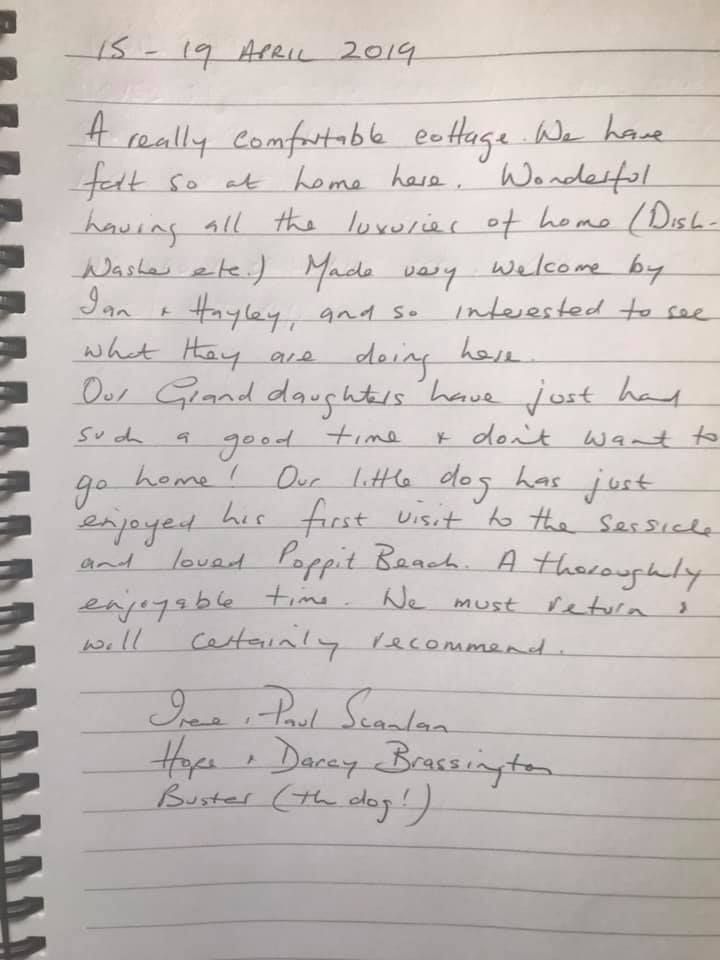 15 - 19 APRIL 2019
A really comfortable cottage. We have
felt so at home here. Wonderful
having all the luxuries of home (Dish-
Washer etc.) Made very welcome by
Ian & Hayley, and so interested to see
what they are doing here.
Our Grand daughters have just had
such a good time & don't want to
go home! Our little dog has just
enjoyed his first visit to the seaside
and loved Poppit Beach. A thoroughly
enjoyable time. We must return &
will certainly recommend.
Irene & Paul Scanlan
Hope & Darcy Brassington
Buster (the dog!)